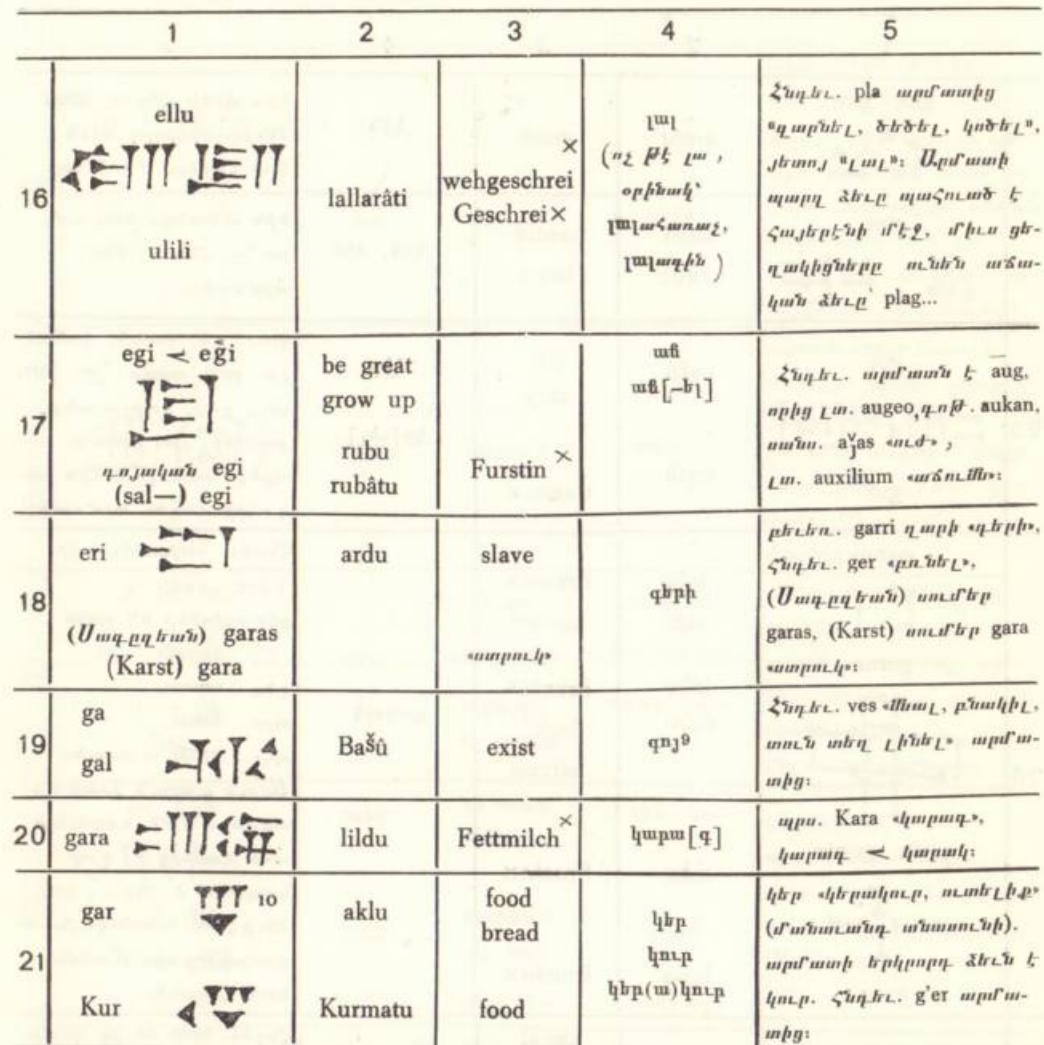 1 2 3 4 5
16
ellu
ulili
lallarâti
×
wehgeschrei
Geschrei×
լալ
(ոչ թէ լա,
օրինակ՝
լալահառաչ,
լալագին)
Հնդեւ. pla արմատից
"զարնել, ծեծել, կոծել",
յետոյ "լալ": Արմատի
պարզ ձեւը պահուած է
Հայերէնի մէջ, միւս ցե-
ղակիցները ունեն աճա-
կան ձեւը՝ plag...
17
egi < eg̃i
գոյական egi
(sal—) egi
be great
grow up
rubu
rubâtu
Furstin ×
աճ
աճ[-ել]
Հնդեւ. արմատն է aug,
որից լտ. augeo, գոթ. aukan,
սանս. ajas «ուժ»,
լտ. auxilium «աճումն»:
18
eri
(Սագըզեան) garas
(Karst) gara
ardu
slave
«ստրուկ»
գերի
բեւեռ. garri ղարի «գերի»,
Հնդեւ. ger «բռնել»,
(Սագըզեան) սումեր
garas, (Karst) սումեր gara
«ստրուկ»:
19
ga
gal
Bašû
exist
գոյ9
Հնդեւ. ves «մնալ, բնակիլ,
տուն տեղ լինել» արմա-
տից:
20
gara
lildu
Fettmilch ×
կարա[գ]
պրս. Kara «կարագ»,
կարագ < կարակ:
21
gar
10
Kur
aklu
Kurmatu
food
bread
food
կեր
կուր
կեր(ա)կուր
կեր «կերակուր, ուտելիք»
(մանաւանդ անասունի).
արմատի երկրորդ ձեւն է
կուր. Հնդեւ. g'er արմա-
տից: